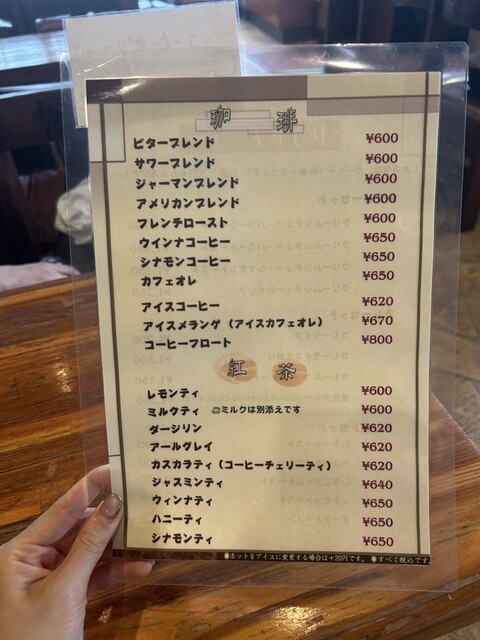 珈琲
ビターブレンド ¥600
サワーブレンド ¥600
ジャーマンブレンド ¥600
アメリカンブレンド ¥600
フレンチロースト ¥600
ウインナコーヒー ¥650
シナモンコーヒー ¥650
カフェオレ ¥650
アイスコーヒー ¥620
アイスメランゲ（アイスカフェオレ） ¥670
コーヒーフロート ¥800
紅茶
レモンティ ¥600
ミルクティ ※ミルクは別添えです ¥600
ダージリン ¥620
アールグレイ ¥620
カスカラティ（コーヒーチェリーティ） ¥620
ジャスミンティ ¥640
ウィンナティ ¥650
ハニーティ ¥650
シナモンティ ¥650
●ホットをアイスに変更する場合は+20円です。 ●すべて税込です